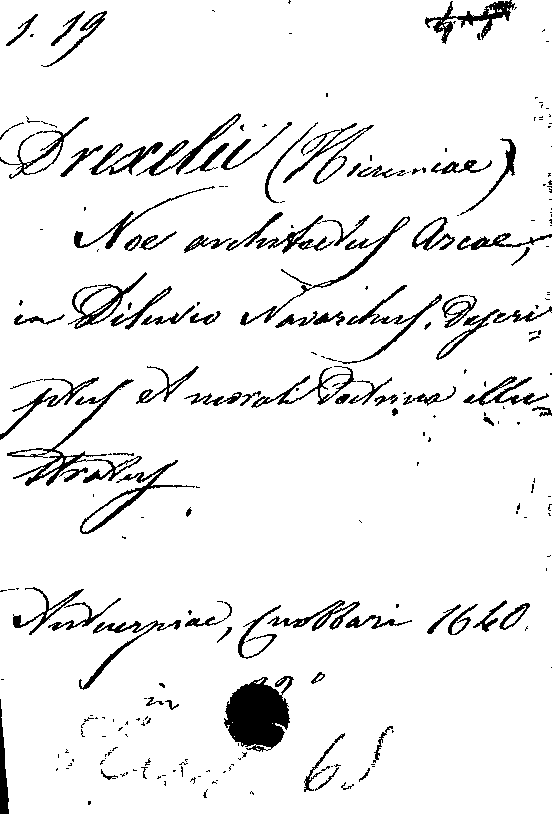 1. 19
Drexelii (Hieremiae)
Noe architectus Arcae,
in Diluvio Navarchus, descri=
ptus et morali doctrina illu=
stratus
Antuerpiae, Cnobbari 1640.
in
65